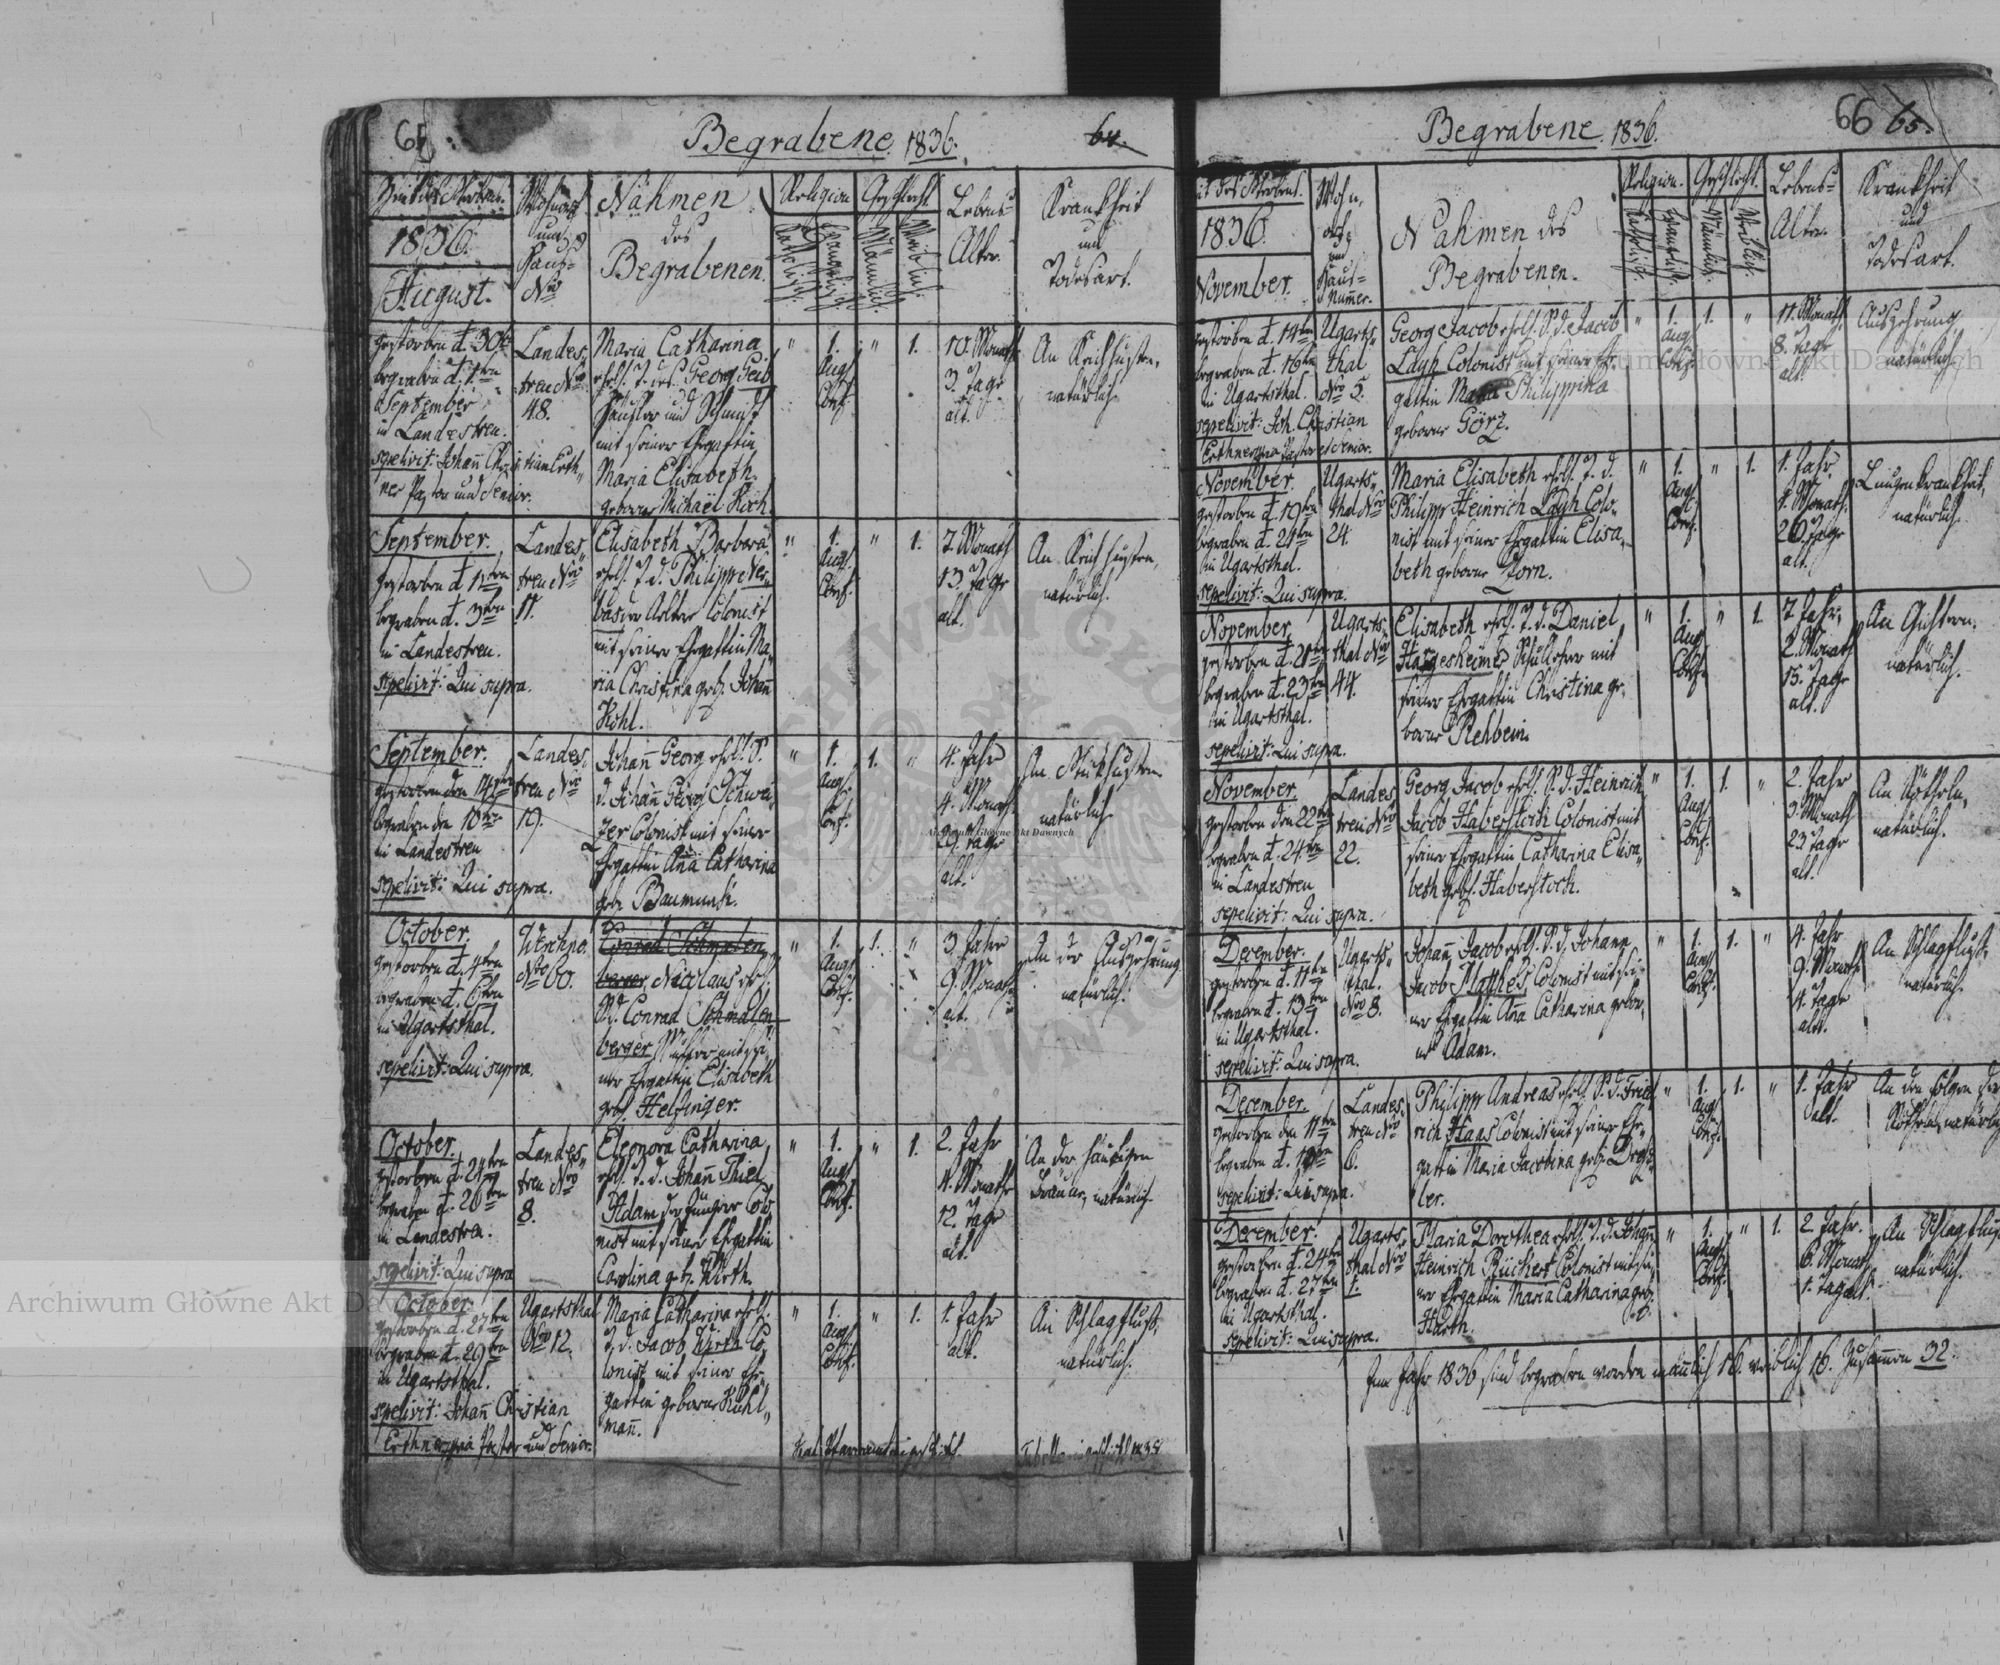 65
Begrabene 1836.
64.
1836.
August.
Wohnort
und
Haus-
Nro
Nahmen
des
Begrabenen.
Religion
Catholisch.
Evangelisch.
Geschlecht.
Männlich.
Weiblich.
Lebens-
Alter.
Krankheit
und
Todesart.
gestorben d. 30ten
begraben d. 1ten
September
in Landestreu.
sepelivit: Johañ Christian Erth-
ner Pastor und Senior.
Landes-
treu Nro
48.
Maria Catharina
ehel. T. des Georg Geib
Häusler und Schmidt
mit seiner Ehegattin
Maria Elisabeth
geborne Michael Koch.
" 1. " 1.
Aug.
Conf.
10. Monath
3. Tage
alt.
An Keichhusten,
natürlich.
September.
gestorben d. 1ten
begraben d. 3ten
in Landestreu.
sepelivit: Qui supra.
Landes-
treu Nro
11.
Elisabeth Barbara
ehel. T. d. Philipp
Colonist
mit seiner Ehegattin Ma-
ria Christina geb. Johañ
Kohl.
" 1. " 1.
Aug.
Conf.
7. Monath
13. Tage
alt.
An Keichhusten,
natürlich.
September.
gestorben den 14ten
begraben den 16ten
in Landestreu
sepelivit: Qui supra.
Landes-
treu Nro
19.
Johañ Georg ehel. S.
d. Johañ Georg Schwei-
zer Colonist mit seiner
Ehegattin Aña Catharina
geb.
" 1. 1. "
Aug.
Conf.
4. Jahr
4. Monath
29. Tage
alt.
An Stickhusten
natürlich.
October.
gestorben d. 4ten
begraben d. 6ten
in Ugartsthal.
sepelivit: Qui supra.
Werchno.
Nro 60.
Conrad Schmalen-
berger, Nicolaus ehel.
S. d. Conrad Schmalen-
berger Müller mit sei-
ner Ehegattin Elisabeth
geb. Helfinger.
" 1. 1. "
Aug.
Conf.
3. Jahr
9. Monath
alt.
An der Auszehrung
natürlich.
October.
gestorben d. 24ten
begraben d. 26ten
in Landestreu.
sepelivit: Qui supra
Landes-
treu Nro
8.
Eleonora Catharina
ehel. T. d. Johañ Thiel
Adam der Jüngere Colo-
nist mit seiner Ehegattin
Carolina geb. Wirth.
" 1. " 1.
Aug.
Conf.
2. Jahr
4. Monath
12. Tage
alt.
An der häutigen
Bräune, natürlich.
October.
gestorben d. 27ten
begraben d. 29ten
in Ugartsthal.
sepelivit: Johañ Christian
Erthner Pastor und Senior.
Ugartsthal
Nro 12.
Maria Catharina ehel.
T. d. Jacob Wirth Co-
lonist mit seiner Ehe-
gattin geborne Kuhl-
mañ.
" 1. " 1.
Aug.
Conf.
1. Jahr
alt.
An Schlagfluß,
natürlich.
Begrabene 1836.
66 65.
Zeit des Sterbens.
1836.
November.
Wohn-
ort
und
Haus-
Numer.
Nahmen des
Begrabenen.
Religion.
Catholisch.
Evangelisch.
Geschlecht.
Männlich.
Weiblich.
Lebens-
Alter.
Krankheit
und
Todesart.
gestorben d. 14ten
begraben d. 16ten
in Ugartsthal.
sepelivit: Joh. Christian
Erthner Pastor et Senior.
Ugarts-
thal
Nro 5.
Georg Jacob ehel. S. d. Jacob
Lagh Colonist mit seiner Ehe-
gattin Maria Philippina
geborne Görz.
" 1. 1. "
Aug.
Conf.
11. Monath
8. Tage
alt.
Auszehrung,
natürlich.
November.
gestorben d. 19ten
begraben d. 21ten
in Ugartsthal.
sepelivit: Qui supra.
Ugarts-
thal Nro
24.
Maria Elisabeth ehel. T. d.
Philipp Heinrich Lagh Colo-
nist mit seiner Ehegattin Elisa-
beth geborne Zorn.
" 1. " 1.
Aug.
Conf.
1. Jahr
1. Monath
26 Tage
alt.
Lungen Krankheit,
natürlich.
November.
gestorben d. 21ten
begraben d. 23ten
in Ugartsthal.
sepelivit: Qui supra.
Ugarts-
thal Nro
44.
Elisabeth ehel. T. d. Daniel
Hargesheimer Schullehrer mit
seiner Ehegattin Christina ge-
borne Rehbein.
" 1. " 1.
Aug.
Conf.
7. Jahr,
2. Monath
15. Tage
alt.
An Gichtern.
natürlich.
November.
gestorben den 22ten
begraben d. 24ten
in Landestreu
sepelivit: Qui supra.
Landes-
treu Nro
22.
Georg Jacob ehel. S. d. Heinrich
Jacob Haberstock Colonist mit
seiner Ehegattin Catharina Elisa-
beth geb. Haberstock.
" 1. 1. "
Aug.
Conf.
2. Jahr
3. Monath
23 Tage
alt.
An Rötheln,
natürlich.
December.
gestorben d. 11ten
begraben d. 13ten
in Ugartsthal.
sepelivit: Qui supra.
Ugarts-
thal.
Nro 8.
Johañ Jacob ehel. S. d. Johann
Jacob Matthes Colonist mit sei-
ner Ehegattin Aña Catharina gebor-
ne Adam.
" 1. 1. "
Aug.
Conf.
4. Jahr
9. Monath
1. Tage
alt.
An Schlagfluß,
natürlich.
December.
gestorben den 11ten
begraben d.
sepelivit: Qui supra.
Landes-
treu Nro
6.
Philipp Andreas ehel. S. d. Fried-
rich Haas Colonist mit seiner Ehe-
gattin Maria Jacobina geb. Dreß-
ler.
" 1. 1. "
Aug.
Conf.
1. Jahr
alt.
An den Folgen der
Rötheln, natürlich
December.
gestorben d. 24ten
begraben d. 27ten
in Ugartsthal.
sepelivit: Qui supra.
Ugarts-
thal Nro
1.
Maria Dorothea ehel. T. d. Johañ
Heinrich Rückert Colonist mit sei-
ner Ehegattin Maria Catharina geb.
Harth.
" 1. " 1.
Aug.
Conf.
2. Jahr.
6. Monath
1. Tag alt.
An Schlagfluß
natürlich.
Im Jahr 1836 sind begraben worden mäñlich 16. weiblich 16. Zusamen 32.
Archiwum Główne Akt Dawnych
Archiwum Główne Akt Dawnych
Archiwum Główne Akt Dawnych